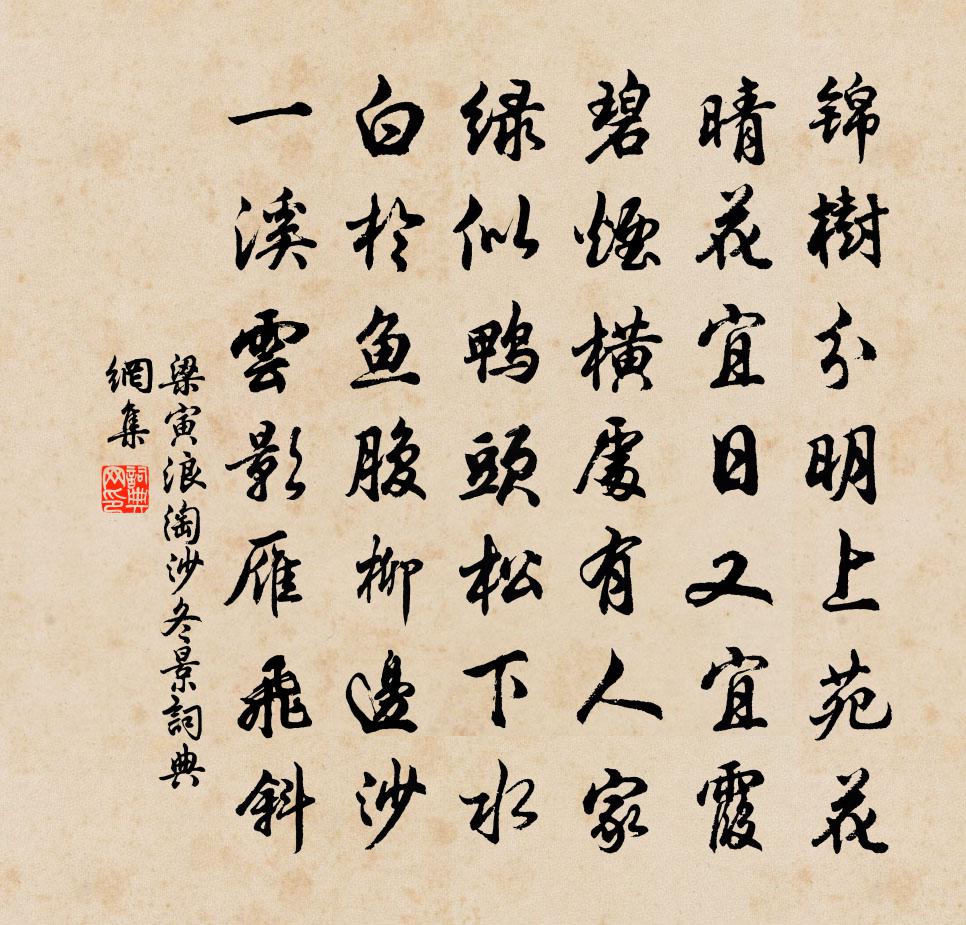 锦樹分明上苑花
晴花宜日又宜霞
碧煙橫處有人家
绿似鴨頭松下水
白於魚腹柳邊沙
一溪雲影雁飛斜
梁寅浪淘沙冬景詞典
網集
詞典
网印